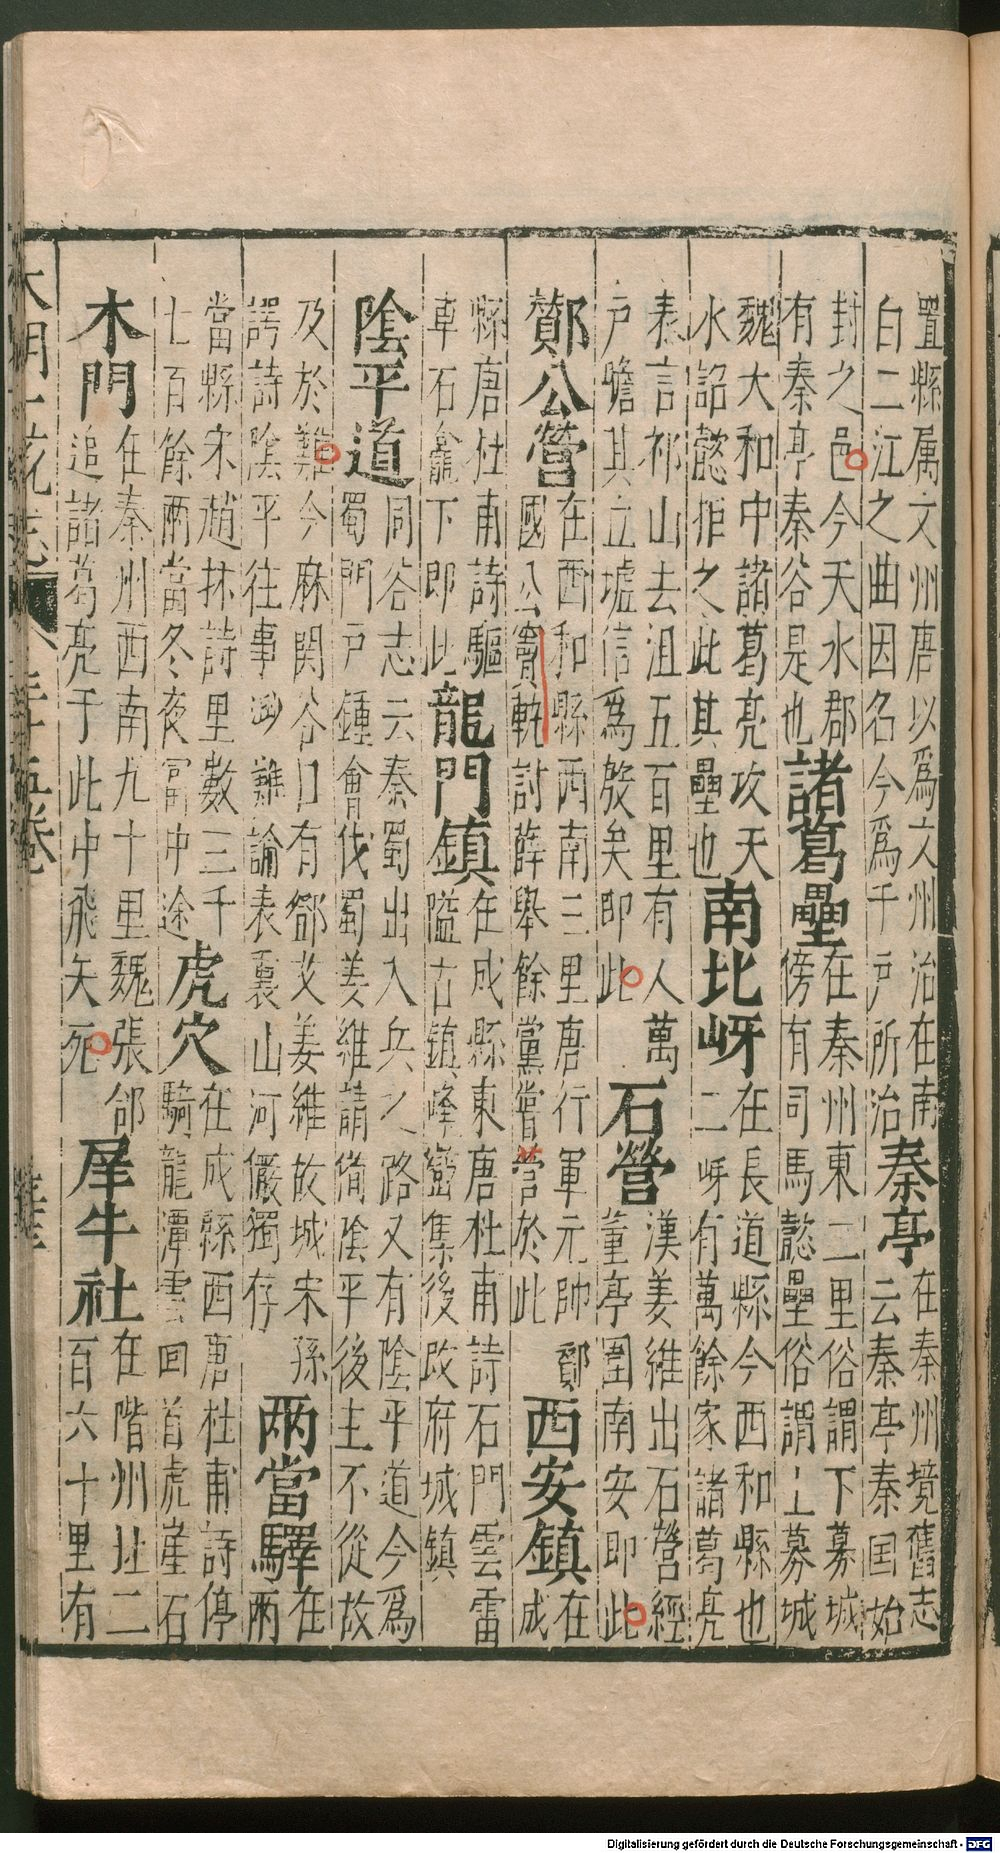 置縣属文州唐以爲文州治在南
白二江之曲因名今爲千戶所治
秦亭
在秦州境舊志
云秦亭秦国始
封之邑今天水郡
有秦亭秦谷是也
諸葛壘
在秦州東二里俗謂下募城
傍有司馬懿壘俗謂上募城
魏大和中諸葛亮攻天
水詔懿拒之此其壘也
南北岈
在長道縣今西和縣也
二岈有萬餘家諸葛亮
表言祁山去沮五百里有人萬
戶瞻其立墟信爲殷矣即此
石營
漢姜維出石營經
董亭圍南安即此
鄼公營
在西和縣西南三里唐行軍元帥鄼
國公竇軌討薛舉餘黨嘗營於此
西安鎮
在
成
縣唐杜甫詩驅
車石龕下即此
龍門鎮
在成縣東唐杜甫詩石門雲雷
隘古鎮峰巒集後改府城鎮
陰平道
同谷志云秦蜀出入兵之路又有陰平道今爲
蜀門戶鍾會伐蜀姜維請備陰平後主不從故
及於難今麻関谷口有鄧艾姜維故城宋孫
諤詩陰平往事渺難論表裏山河儼獨存
兩當驛
在
兩
當縣宋趙抃詩里數三千
七百餘兩當冬夜宿中途
虎穴
在成縣西唐杜甫詩停
騎龍潭雲回首虎崖石
木門
在秦州西南九十里魏張郃
追諸葛亮于此中飛矢死
犀牛社
在階州北二
百六十里有
大明一統志
三十五卷
Digitalisierung gefördert durch die Deutsche Forschungsgemeinschaft - DFG